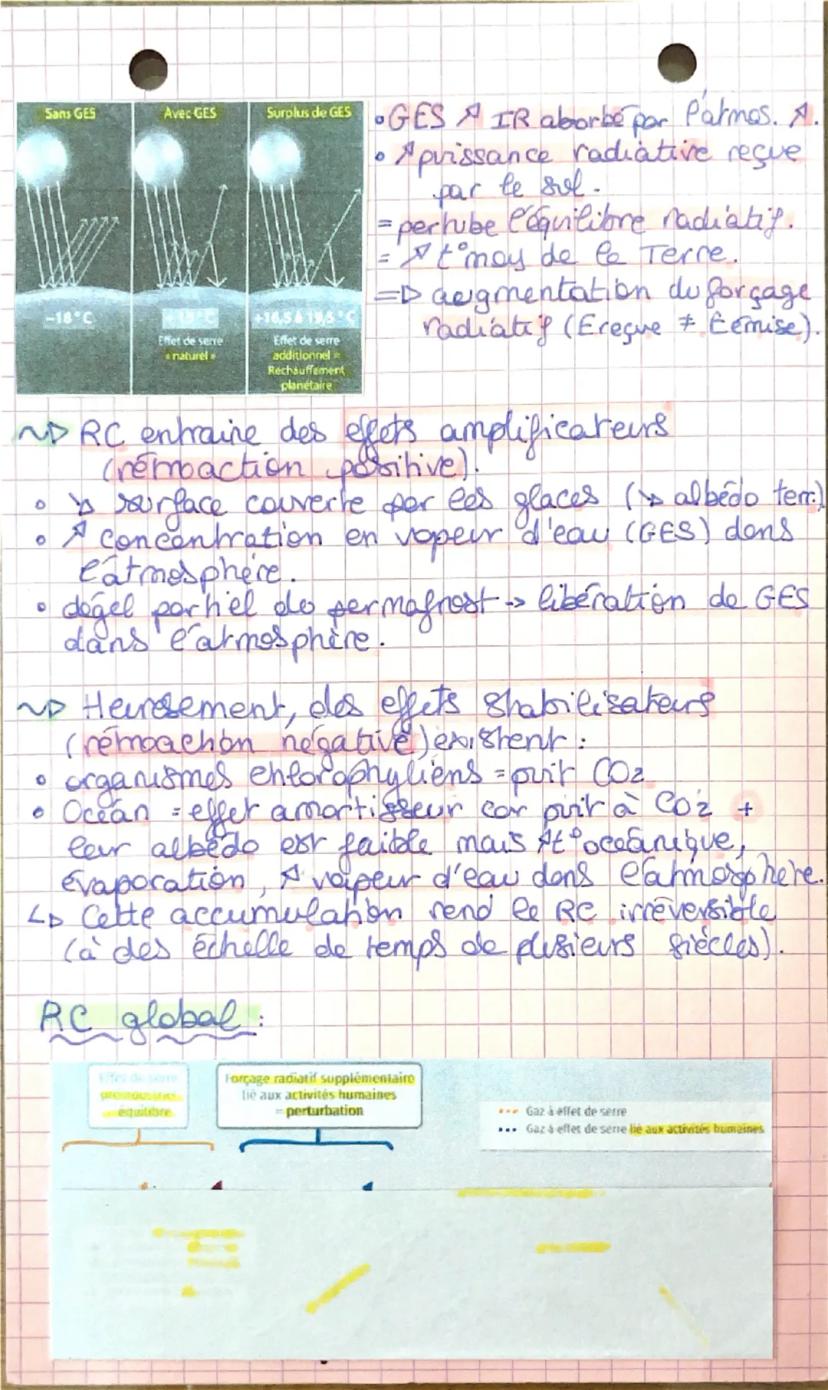 Sans GES
Avec GES
Surplus de GES
-18°C
+15°C
+16,5 à 19,5°C
Effet de serre
« naturel »
Effet de serre
additionnel =
Réchauffement
planétaire
• GES ↗ IR aborbé par l'atmos. ↗.
• ↗ puissance radiative reçue
par le sol.
= pertube l'équilibre radiatif.
= ↗ t° moy de la Terre.
=> augmentation du forçage
radiatif (E reçue ≠ E émise).
~> RC entraine des effets amplificateurs
(rétroaction positive).
• ↘ surface couverte par les glaces (↘ albédo terr.)
• ↗ concentration en vapeur d'eau (GES) dans
l'atmosphère.
• dégel partiel du permafrost -> libération de GES
dans l'atmosphère.
~> Heuresement, des effets stabilisateurs
(rétroaction négative) existent :
• organismes chlorophyliens = puit CO2
• Océan = effet amortisseur car puit à CO2 +
leur albédo est faible mais ↗ t° océanique,
évaporation, ↗ vapeur d'eau dans l'atmosphère.
↳ Cette accumulation rend le RC irréversible
(à des échelle de temps de plusieurs siècles).
RC global :
Effet de serre
équilibre
Forçage radiatif supplémentaire
lié aux activités humaines
= perturbation
Gaz à effet de serre
Gaz à effet de serre lié aux activités humaines